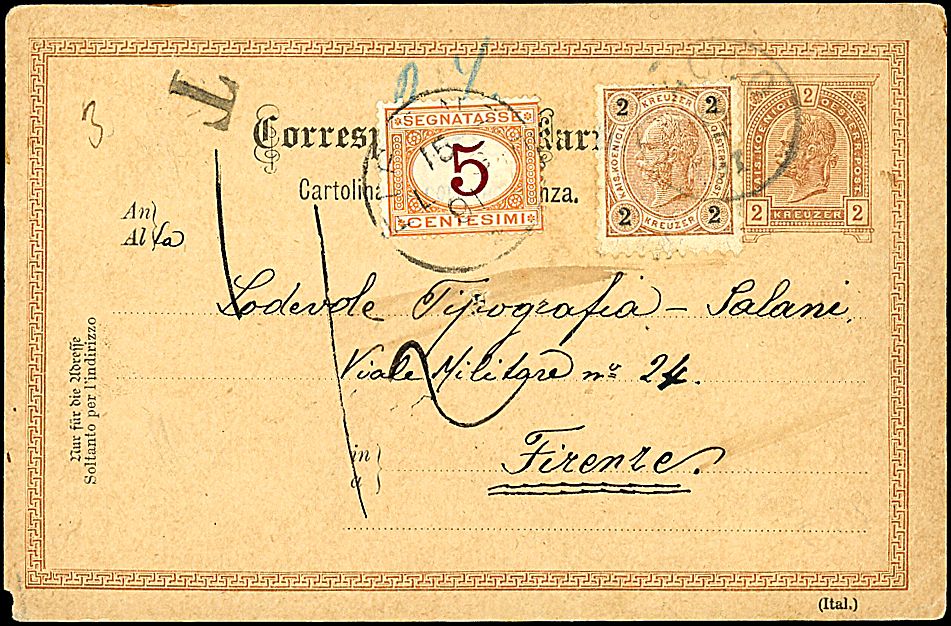 T
3
SEGNATASSE
5
CENTESIMI
2 KREUZER 2
KAIS. KOENIGL. OESTERR. POST.
2 KREUZER 2
2
KAIS. KOENIGL. OESTERR. POST.
2 KREUZER 2
15
91
Corresp Karr
Cartolina nza.
An
Al la
Lodevole Tipografia - Salani
Viale Militare no 24.
in
a
Firenze.
Nur für die Adresse
Soltanto per l'indirizzo
(Ital.)